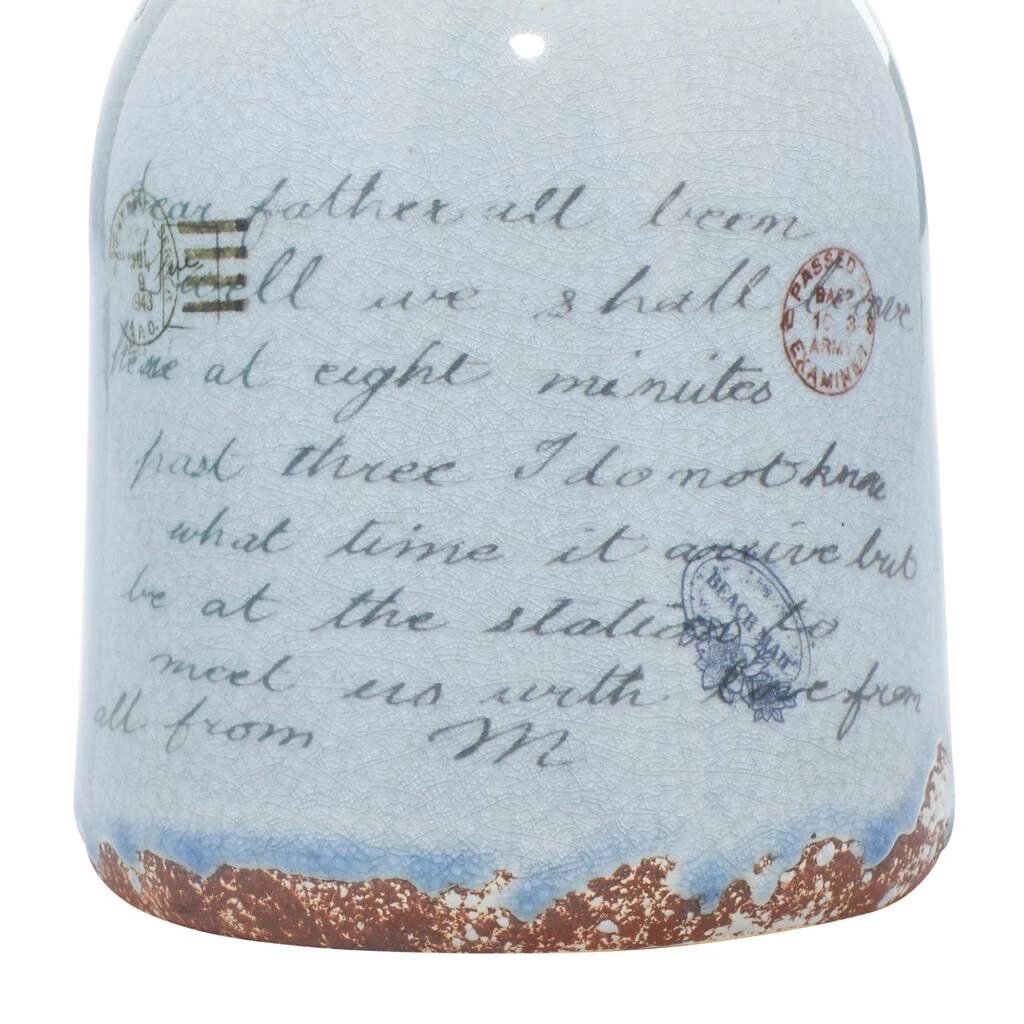 Dear father all beem
well we shall leave
here at eight minutes
past three I do not know
what time it arrive but
be at the station to
meet us with love from
all from M
1943
A.P.O.
PASSED
ARMY
EXAMINER
BEACH